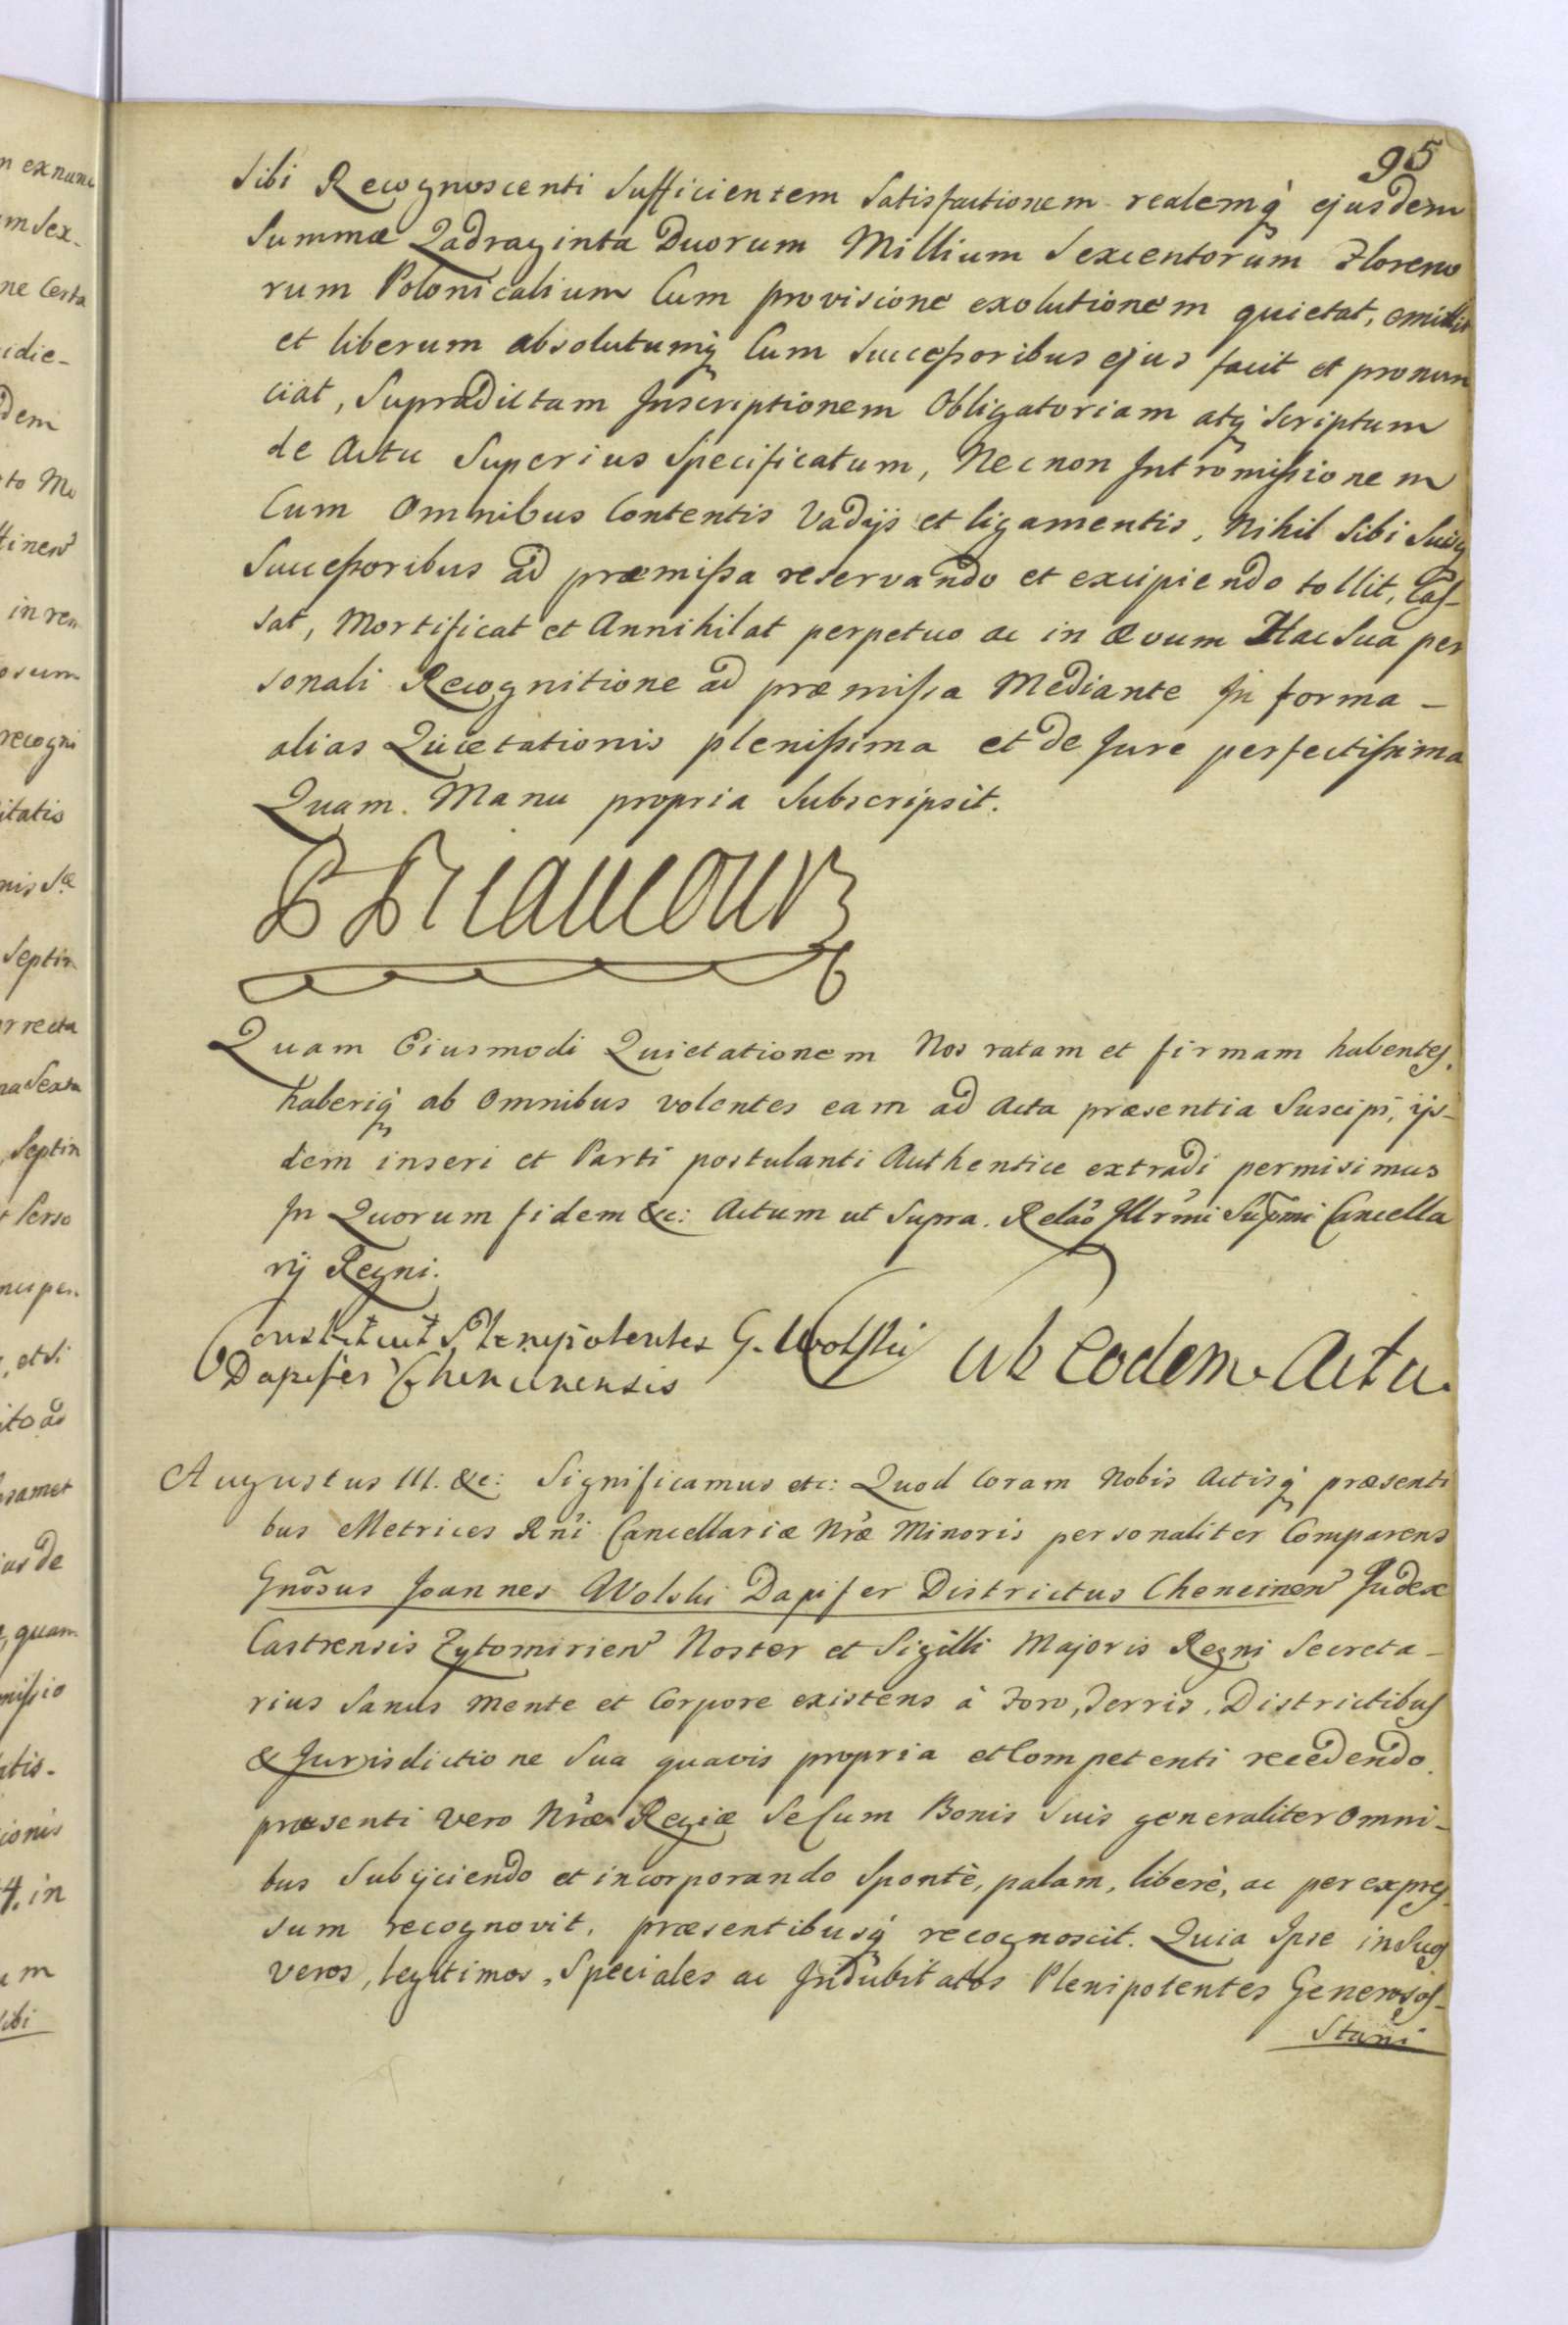 95
Sibi Recognoscenti Sufficientem Satisfactionem realemq́ ejusdem
Summæ Qadraginta Duorum Millium Sexcentorum Floreno
rum Polonicalium Cum provisione exolutionem quietat, emittit
et liberum absolutumq́ Cum Succeſsoribus ejus facit et pronun
ciat, Supradictam Inscriptionem Obligatoriam atq́ Scriptum
de Actu Superius Specificatum, Necnon Intromiſsionem
Cum Omnibus Contentis Vadijs et ligamentis, Nihil Sibi Suisq́
Succeſsoribus ad præmiſsa reservando et excipiendo tollit, Caſ-
sat, Mortificat et Annihilat perpetuo ac in ævum Hac Sua per
sonali Recognitione ad præmiſsa Mediante In forma -
alias Quietationis pleniſsima et de Jure perfectiſsima
Quam Manu propria Subscripsit.
Quam Eiusmodi Quietationem Nos ratam et firmam habentes,
haberiq́ ab Omnibus volentes eam ad Acta præsentia Suscipi, ijs-
dem inseri et Parti postulanti Authentice extradi permisimus
In Quorum fidem &c: Actum ut Supra. Relaõ Illr̃mi Supr̃mi Cancella
rij Regni.
Constituit Plenipotentes G. Wolski
Dapifer Chencinensis
ab Eodem Actu.
Augustus III. &c: Significamus etc: Quod Coram Nobis Actisq́ præsenti
bus Metrices Rñi Cancellariæ Nr̃æ Minoris personaliter Comparens
Gnõsus Joannes Wolski Dapifer Districtus Chencinen̉ Judex
Castrensis Zytomirien̉ Noster et Sigilli Majoris Regni Secreta-
rius Sanus mente et Corpore existens à Foro, Terris, Districtibus
& Jurisdictione Sua quavis propria et Competenti recedendo.
præsenti vero Nr̃æ Regiæ Se Cum Bonis Suis generaliter Omni-
bus Subijciendo et incorporando Spontè, palam, liberè, ac per expres
sum recognovit, præsentibusq́ recognoscit. Quia Ipse in Suos
veros, legitimos, Speciales ac Indubitatos Plenipotentes Generosos-
Stañi